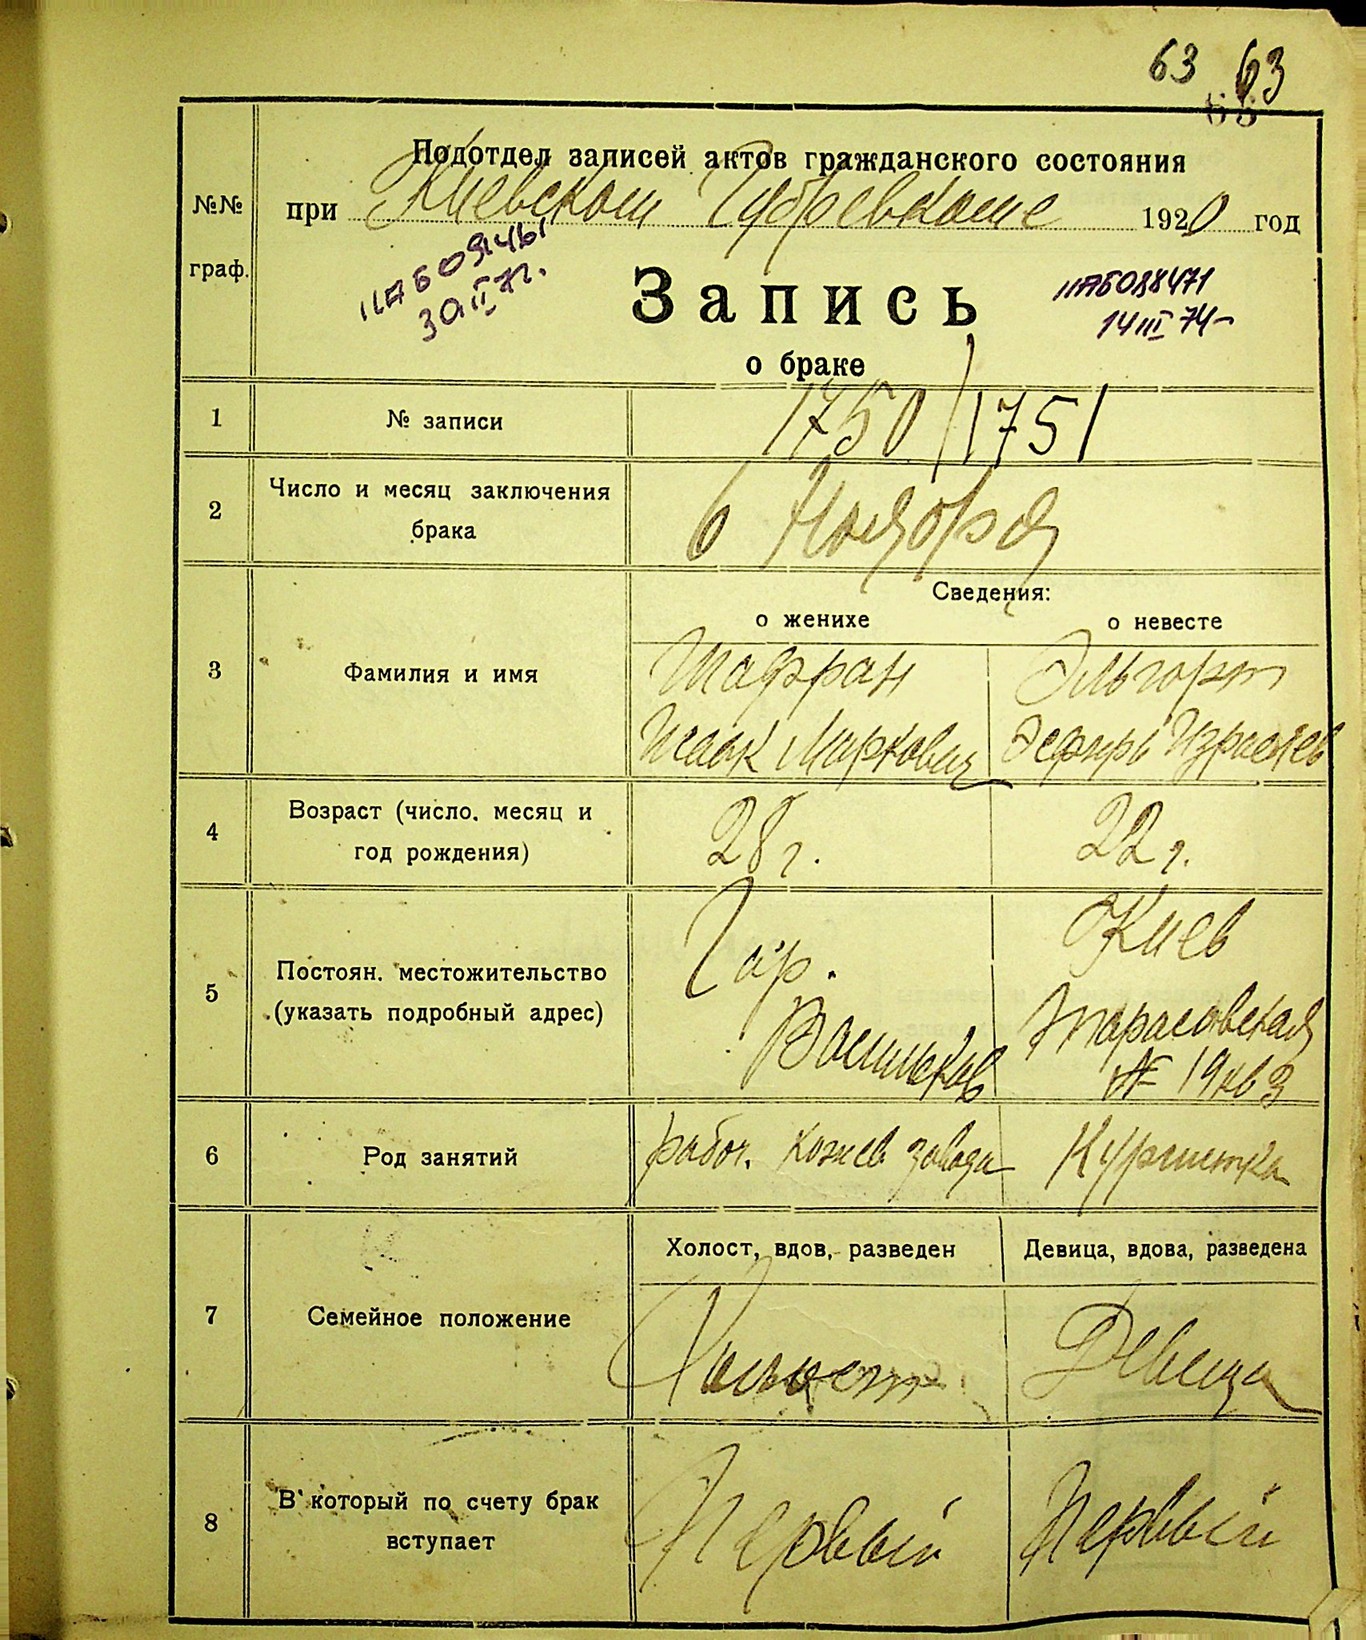 63 63
Подотдел записей актов гражданского состояния
№№ граф.
при Киевском Губревкоме 1920 год
30 II 74.
14 III 74
Запись
о браке
1 № записи 1750/1751
2 Число и месяц заключения
брака
6 Ноября
Сведения:
о женихе о невесте
3 Фамилия и имя
Шафран Эльгорт
Исаак Маркович Эсфирь Израилев
4 Возраст (число, месяц и
год рождения)
28 г. 22 г.
5 Постоян. местожительство
(указать подробный адрес)
Гор. Киев
Васильков Тарасовская
№ 19 кв 3
6 Род занятий
рабоч. кожев завода Курсистка
Холост, вдов, разведен Девица, вдова, разведена
7 Семейное положение
Холост Девица
8 В который по счету брак
вступает
Первый Первый